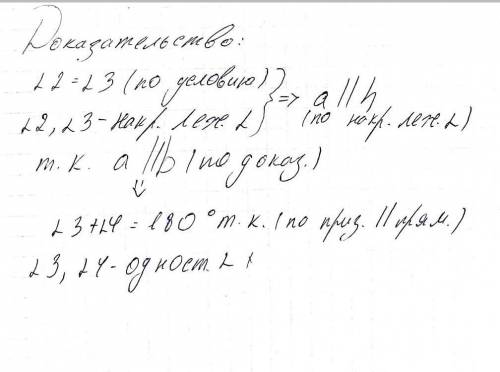 Доказательство:
∠2 = ∠3 (по условию) } => a || b
∠2, ∠3 - накр. леж. ∠ } (по накр. леж. ∠)
т.к. a || b (по доказ.)
⇓
∠3 + ∠4 = 180° т.к. (по приз. || прям.)
∠3, ∠4 - одност. ∠